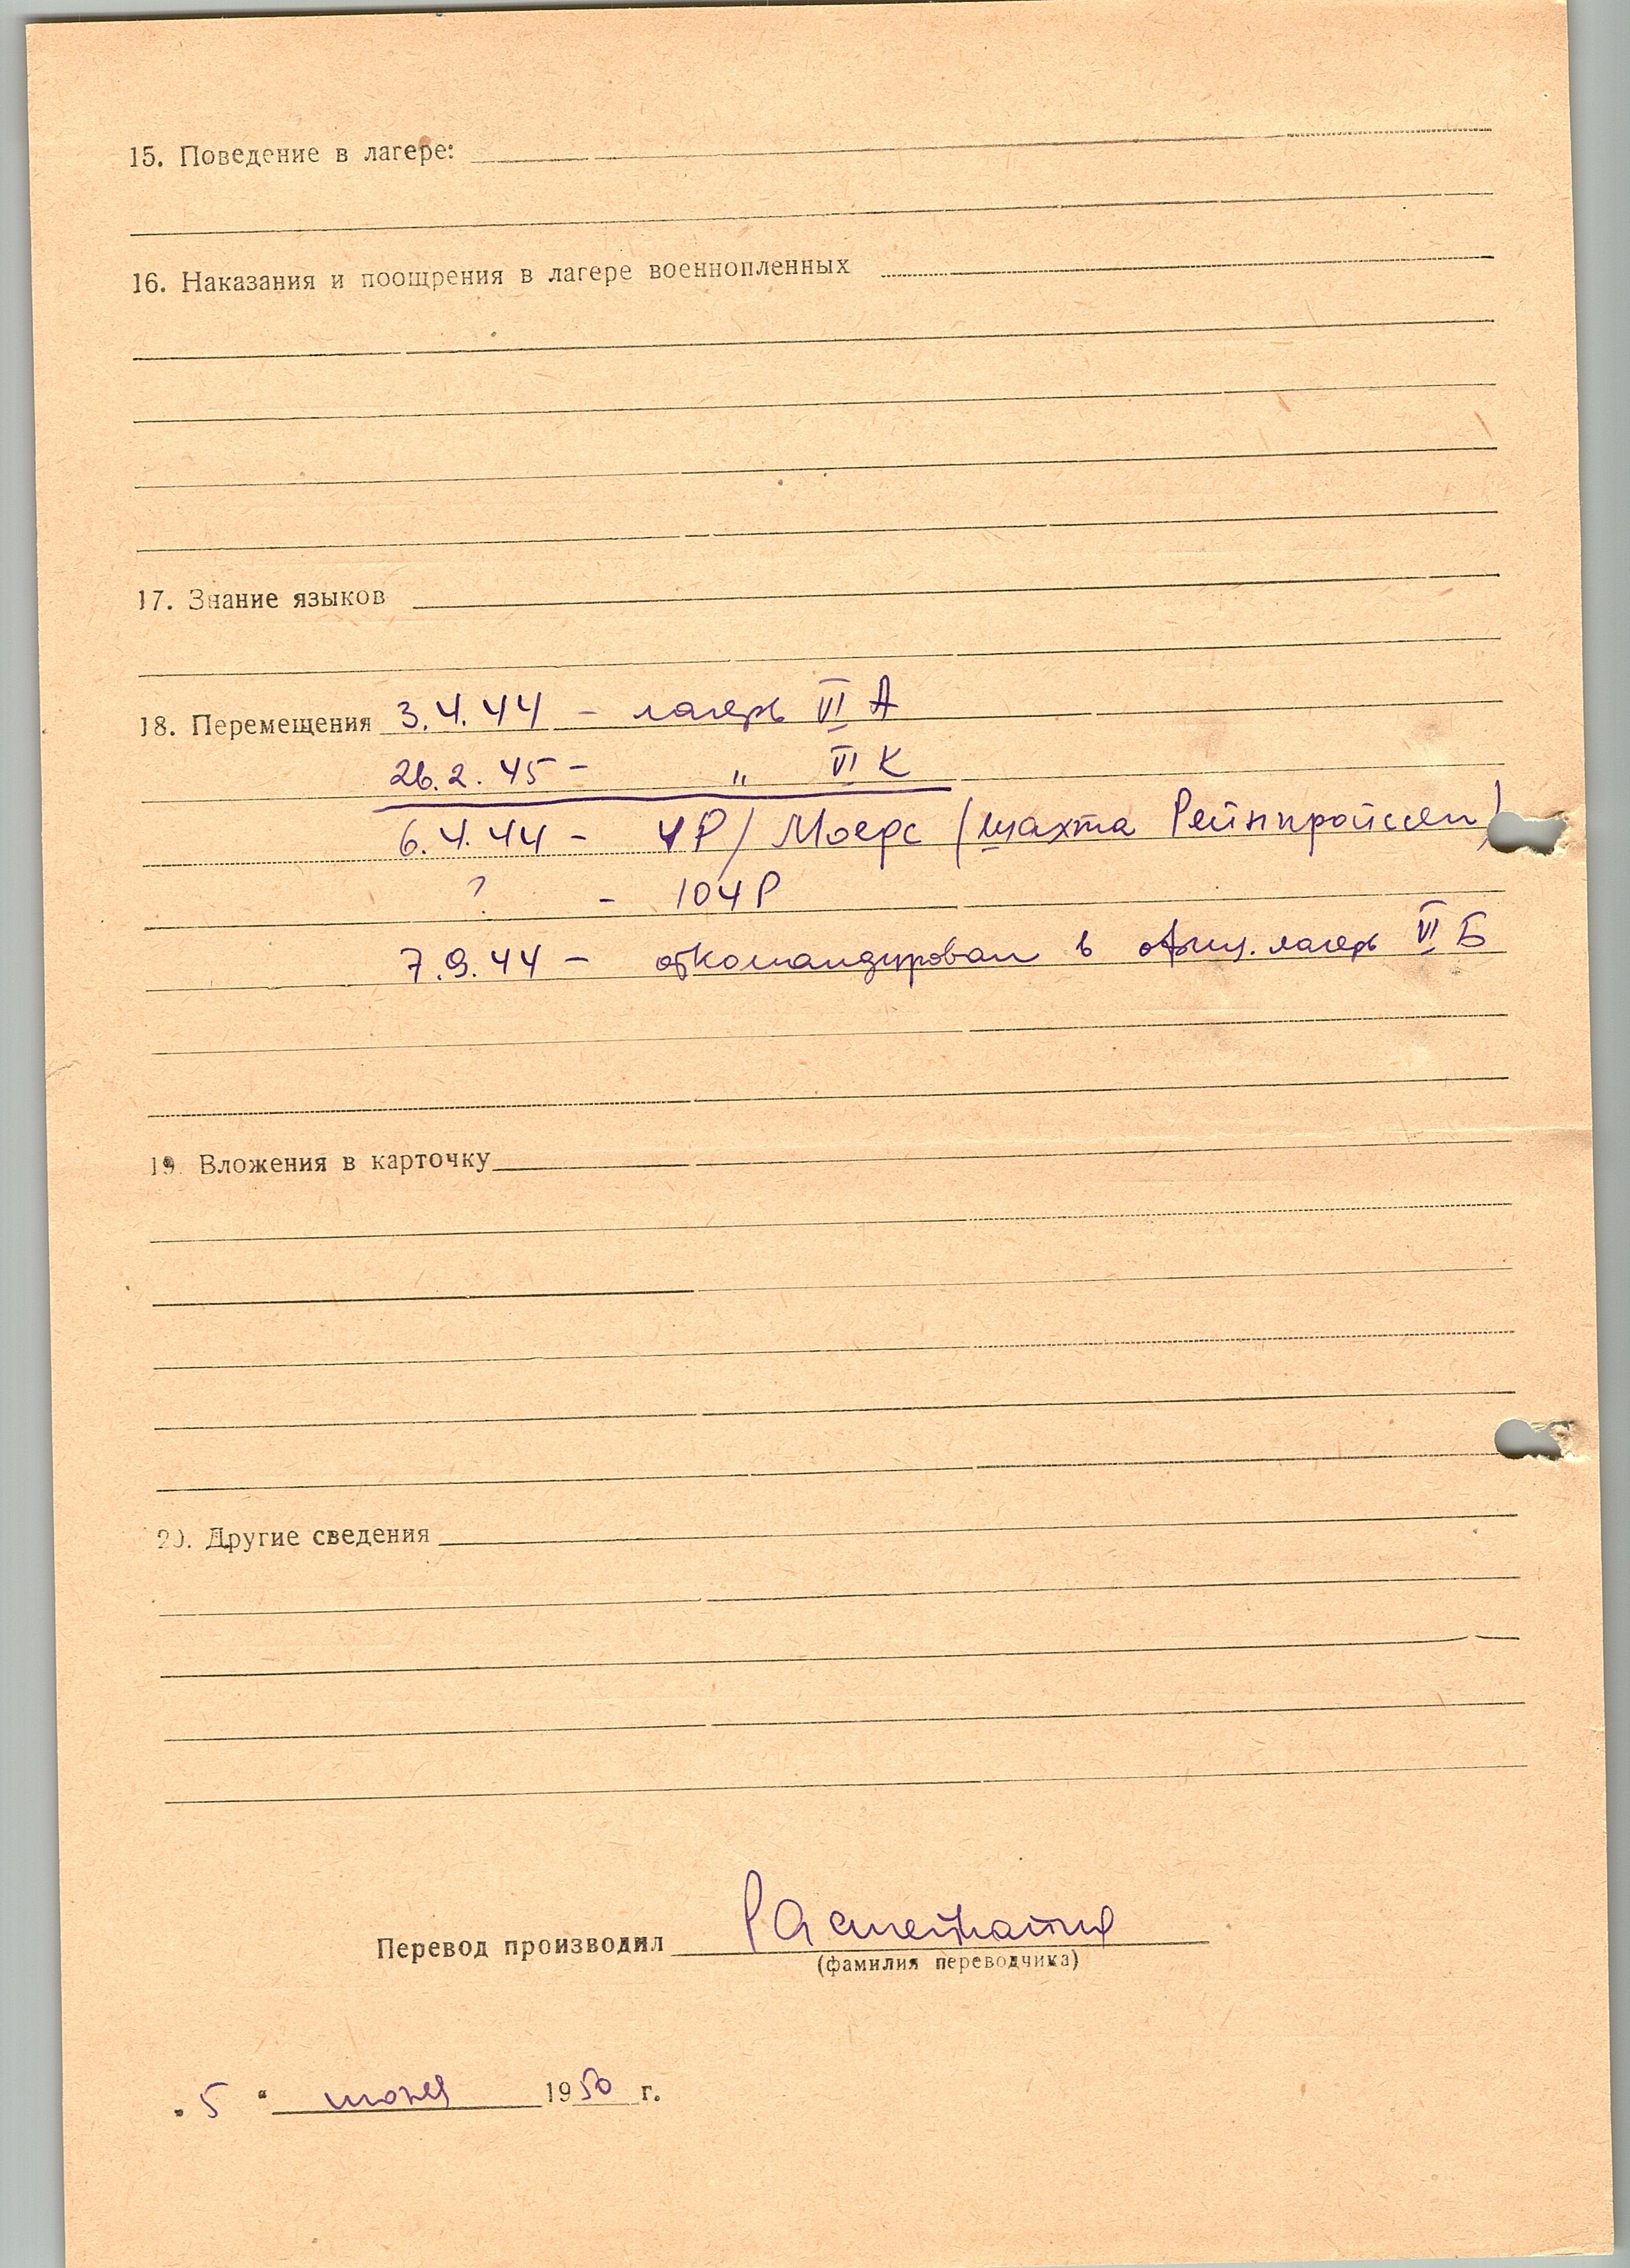 15. Поведение в лагере:
16. Наказания и поощрения в лагере военнопленных
17. Знание языков
18. Перемещения 3.4.44 - лагерь VI А
26.2.45 - " VI К
6.4.44 - 4Р/ Моерс (шахта Рейнпройссен)
? - 104Р
7.9.44 - откомандирован в офиц. лагерь VI Б
19. Вложения в карточку
20. Другие сведения
Перевод производил
(фамилия переводчика)
"5" июня 1950 г.